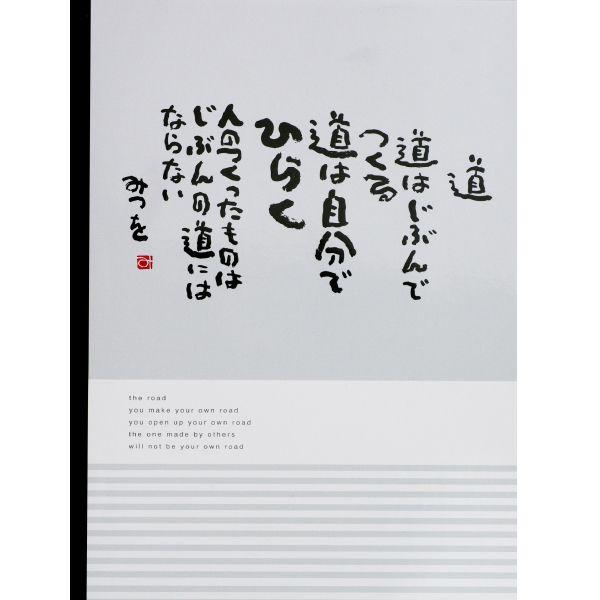 道
道はじぶんで
つくる
道は自分で
ひらく
人のつくったものは
じぶんの道には
ならない
みつを
the road
you make your own road
you open up your own road
the one made by others
will not be your own road